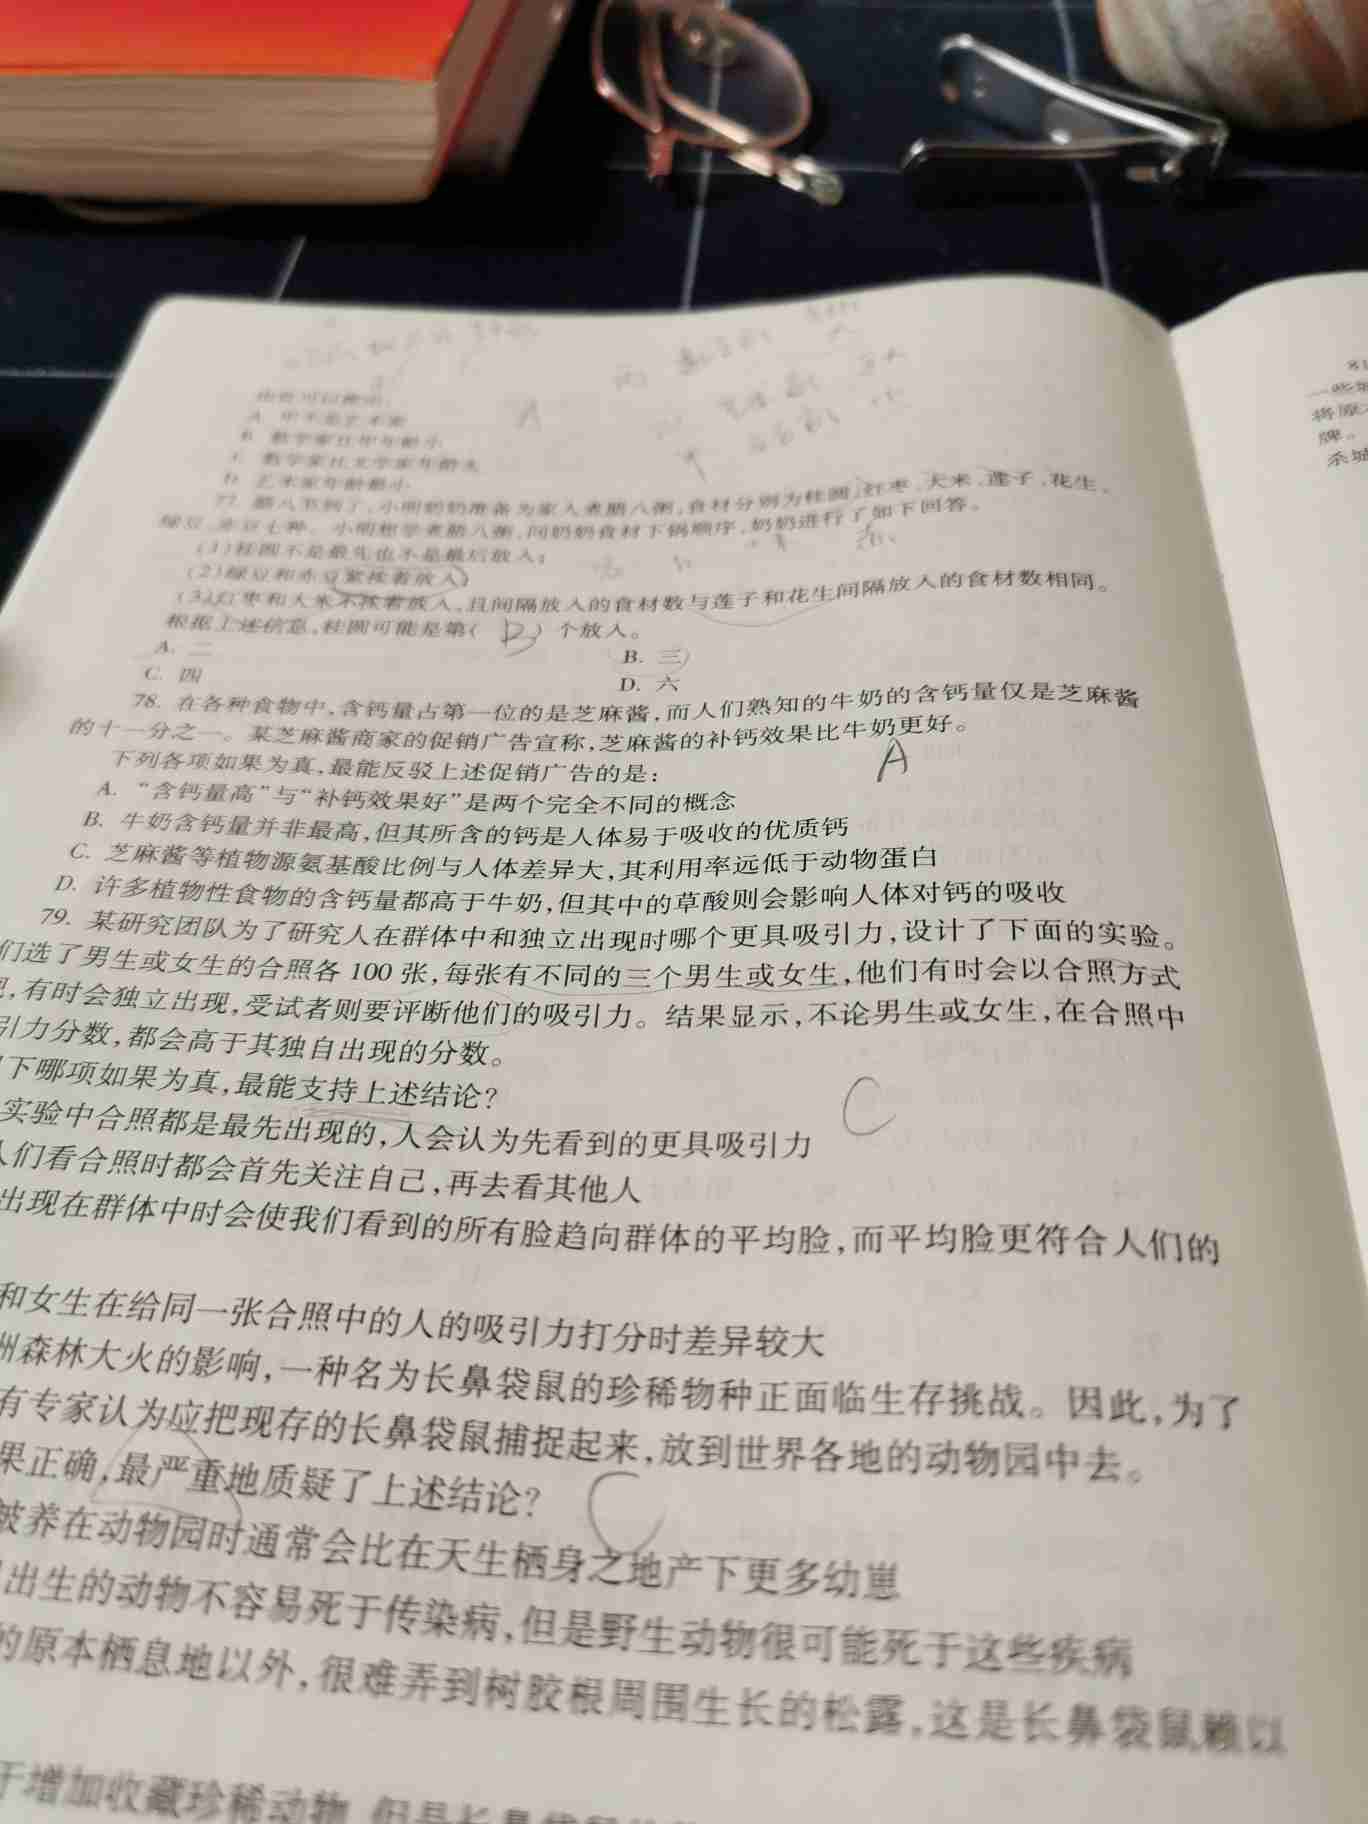 由此可以推出:
A. 甲不是艺术家
B. 数学家比甲年龄小
C. 数学家比文学家年龄大
D. 艺术家年龄最小
A
77. 腊八节到了,小明奶奶准备为家人煮腊八粥,食材分别为桂圆、红枣、大米、莲子、花生、
绿豆、赤豆七种。小明想学煮腊八粥,问奶奶食材下锅顺序,奶奶进行了如下回答。
(1)桂圆不是最先也不是最后放入;
(2)绿豆和赤豆紧挨着放入;
(3)红枣和大米不挨着放入,且间隔放入的食材数与莲子和花生间隔放入的食材数相同。
根据上述信息,桂圆可能是第( D ) 个放入。
A. 二
B. 三
C. 四
D. 六
78. 在各种食物中,含钙量占第一位的是芝麻酱,而人们熟知的牛奶的含钙量仅是芝麻酱
的十一分之一。某芝麻酱商家的促销广告宣称,芝麻酱的补钙效果比牛奶更好。
下列各项如果为真,最能反驳上述促销广告的是:
A
A. “含钙量高”与“补钙效果好”是两个完全不同的概念
B. 牛奶含钙量并非最高,但其所含的钙是人体易于吸收的优质钙
C. 芝麻酱等植物源氨基酸比例与人体差异大,其利用率远低于动物蛋白
D. 许多植物性食物的含钙量都高于牛奶,但其中的草酸则会影响人体对钙的吸收
79. 某研究团队为了研究人在群体中和独立出现时哪个更具吸引力,设计了下面的实验。
们选了男生或女生的合照各 100 张,每张有不同的三个男生或女生,他们有时会以合照方式
,有时会独立出现,受试者则要评断他们的吸引力。结果显示,不论男生或女生,在合照中
引力分数,都会高于其独自出现的分数。
下哪项如果为真,最能支持上述结论?
C
实验中合照都是最先出现的,人会认为先看到的更具吸引力
人们看合照时都会首先关注自己,再去看其他人
出现在群体中时会使我们看到的所有脸趋向群体的平均脸,而平均脸更符合人们的
和女生在给同一张合照中的人的吸引力打分时差异较大
州森林大火的影响,一种名为长鼻袋鼠的珍稀物种正面临生存挑战。因此,为了
有专家认为应把现存的长鼻袋鼠捕捉起来,放到世界各地的动物园中去。
果正确,最严重地质疑了上述结论?
C
被养在动物园时通常会比在天生栖身之地产下更多幼崽
出生的动物不容易死于传染病,但是野生动物很可能死于这些疾病
的原本栖息地以外,很难弄到树胶根周围生长的松露,这是长鼻袋鼠赖以
于增加收藏珍稀动物,但是长鼻袋鼠
81
一些
将原
牌。
杀